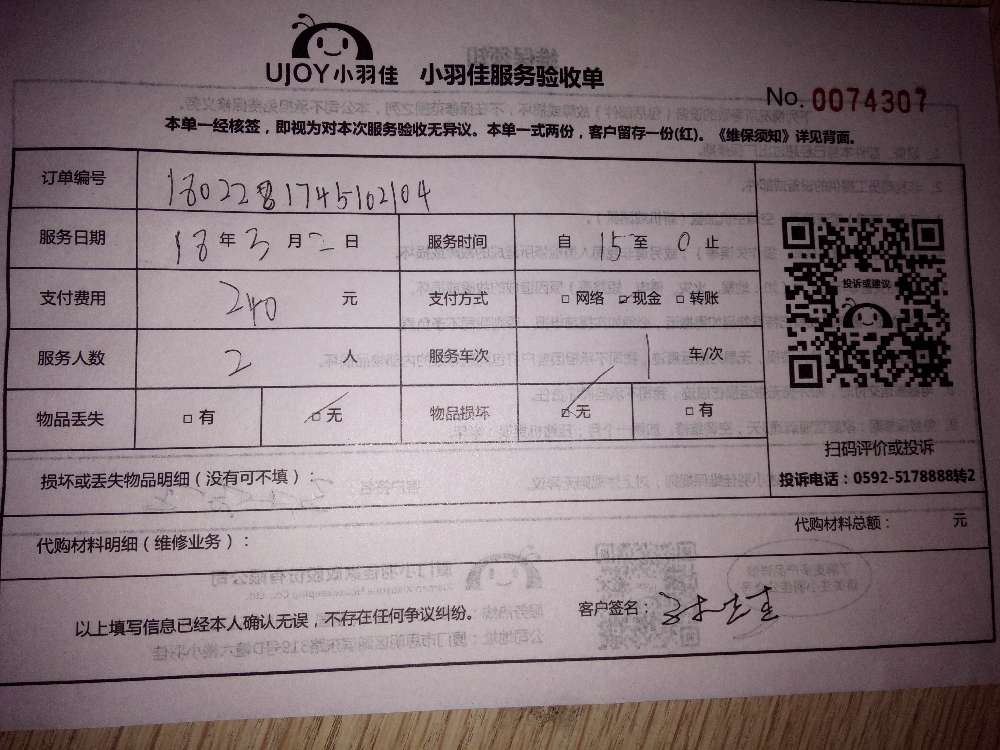 UJOY小羽佳 小羽佳服务验收单
No. 0074307
本单一经核签，即视为对本次服务验收无异议。本单一式两份，客户留存一份(红)。《维保须知》详见背面。
订单编号
服务日期 18 年 3 月 2 日 服务时间 自 15 至 0 止
支付费用 240 元 支付方式 □ 网络 ☑ 现金 □ 转账
服务人数 2 人 服务车次 1 车/次
物品丢失 □ 有 ☑ 无 物品损坏 ☑ 无 □ 有
投诉或建议
扫码评价或投诉
投诉电话：0592-5178888转2
损坏或丢失物品明细（没有可不填）：
代购材料明细（维修业务）： 代购材料总额： 元
以上填写信息已经本人确认无误，不存在任何争议纠纷。 客户签名：